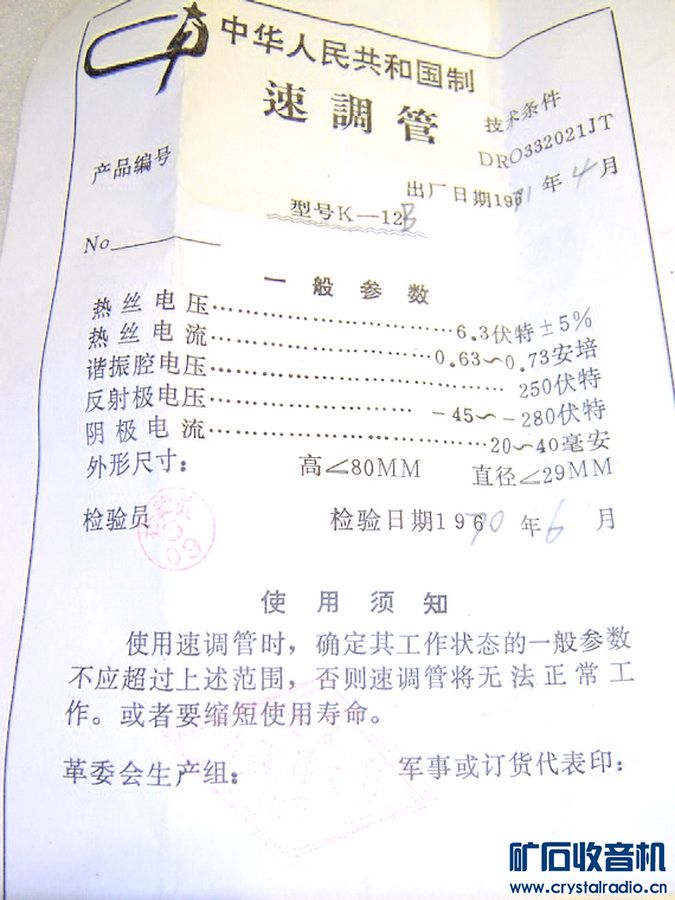 中华人民共和国制
速調管
技术条件
DRO332021JT
产品编号
出厂日期1971年4月
型号K—12B
No
一般参数
热丝电压……………………………6.3伏特±5%
热丝电流……………………………0.63～0.73安培
谐振腔电压……………………………250伏特
反射极电压…………………… -45～-280伏特
阴极电流……………………………20～40毫安
外形尺寸： 高∠80MM 直径∠29MM
检验员 检验日期1970年6月
使用须知
使用速调管时，确定其工作状态的一般参数
不应超过上述范围，否则速调管将无法正常工
作。或者要缩短使用寿命。
革委会生产组： 军事或订货代表印：
矿石收音机
www.crystalradio.cn